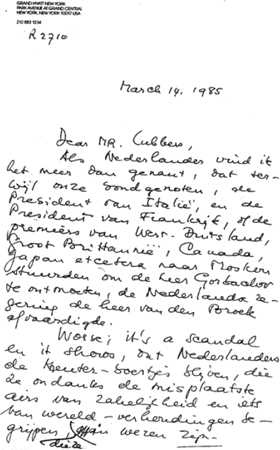 GRAND HYATT NEW YORK
PARK AVENUE AT GRAND CENTRAL
NEW YORK, NEW YORK 10017 USA
212 883 1234
R 2710
March 14, 1985
Dear MR. Lubbers,
Als Nederlander vind ik
het meer dan genant, dat ter-
wijl onze bondgenoten, de
President van Italië, en de
President van Frankrijk, of de
premiers van West-Duitsland,
Groot Brittannië, Canada,
Japan etcetera naar Moskou
stuurden om de heer Gorbachov
te ontmoeten, de Nederlandse re-
gering de heer van den Broek
afvaardigde.
Worse; it's a scandal
en it shows, dat Nederlanders
de Keuter-boertjes blijven, die
ze ondanks de misplaatste
airs van zakelijkheid en iets
van wereld-verhoudingen be-
grijpen, in wezen zijn.